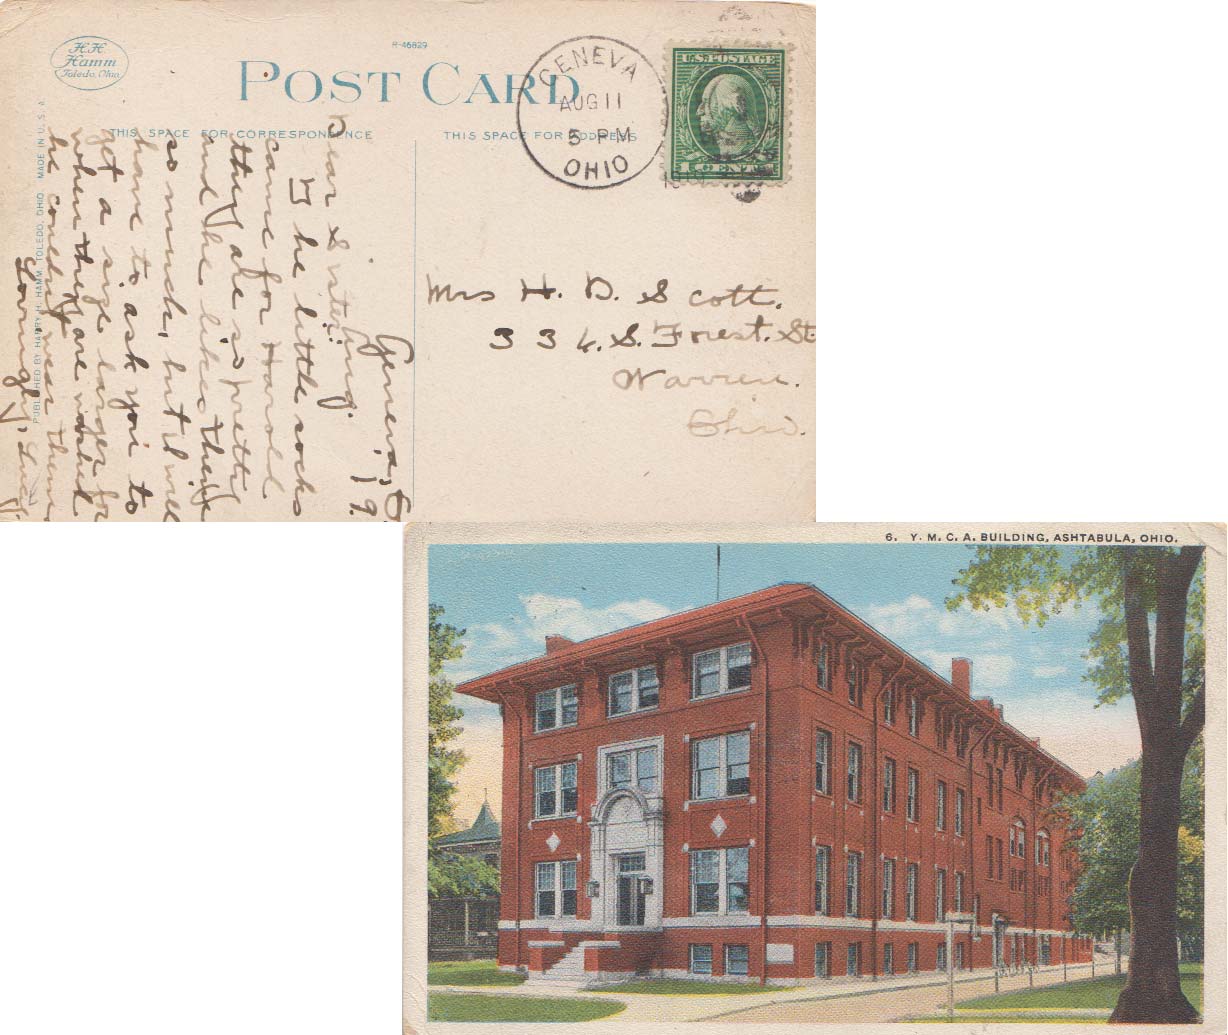 H.H.
Hamm
Toledo, Ohio
R-46829
POST CARD
THIS SPACE FOR CORRESPONDENCE
THIS SPACE FOR ADDRESS
PUBLISHED BY HARRY H. HAMM, TOLEDO, OHIO. MADE IN U. S. A.
GENEVA
AUG 11
5 PM
OHIO
U.S. POSTAGE
1 CENT 1
Geneva, O.
19.
Dear Sister
The little socks
came for Harold
they are so pretty
and he likes their
so much, but I will
have to ask you to
get a size larger for
when they are washed
he couldn't wear them
Lovingly, Lucy
Mrs H. D. Scott.
334. S. Forest. St
Warren.
Ohio.
6. Y. M. C. A. BUILDING, ASHTABULA, OHIO.